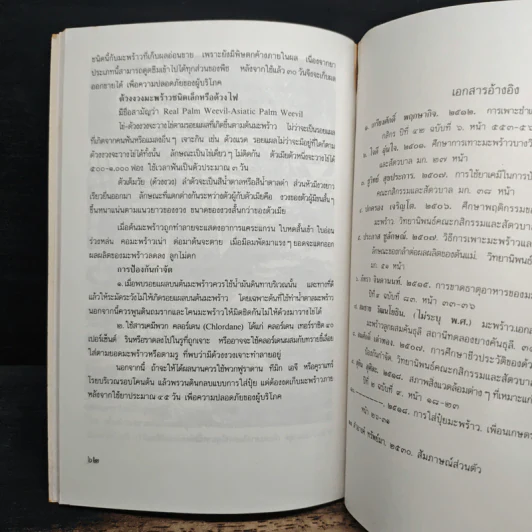 ชนิดนี้กับมะพร้าวที่เก็บผลอ่อนขาย เพราะยังมีพิษตกค้างภายในผล เนื่องจากยา
ประเภทนี้สามารถดูดซึมเข้าไปได้ทุกส่วนของพืช หลังจากใช้แล้ว ๓๐ วันจึงจะเก็บผล
ออกขายได้ เพื่อความปลอดภัยของผู้บริโภค
ด้วงงวงมะพร้าวชนิดเล็กหรือด้วงไฟ
มีชื่อสามัญว่า Real Palm Weevil-Asiatic Palm Weevil
ไข่-ตัวงวงจะวางไข่ตามรอยแผลที่เกิดขึ้นตามต้นมะพร้าว ไม่ว่าจะเป็นรอยแผล
ที่เกิดจากคนฟันหรือแมลงอื่นๆ เจาะกัน เช่น ด้วงแรด รอยแผลไม่ว่าจะมีอยู่ที่ใดก็ตาม
ด้วงงวงจะวางไข่ได้ทั้งนั้น ลักษณะเป็นไข่เดี่ยวๆ ไม่ติดกัน ตัวเมียตัวหนึ่งจะวางไข่ได้
๕๐๐-๑,๐๐๐ ฟอง ใช้เวลาฟักเป็นตัวประมาณ ๓ วัน
ตัวเต็มวัย (ด้วงงวง) ลำตัวจะเป็นสีน้ำตาลหรือสีน้ำตาลดำ ส่วนหัวมีงวงยาว
เรียวยื่นออกมา ลักษณะที่แตกต่างกันระหว่างตัวผู้กับตัวเมียคือ งวงของตัวผู้มีขนสั้นๆ
ขึ้นหนาแน่นตามแนวยาวของงวง ขนาดของงวงสั้นกว่าของตัวเมีย
เมื่อต้นมะพร้าวถูกทำลายจะแสดงอาการแคระแกรน ใบหดสั้นเข้า ใบอ่อน
ร่วงหล่น คอมะพร้าวเน่า ต่อมาต้นจะตาย เมื่อมีลมพัดมาแรงๆ ยอดจะแตกออก
ผลผลิตของมะพร้าวลดลง ลูกไม่ดก
การป้องกันกำจัด
๑. เมื่อพบรอยแผลบนต้นมะพร้าวควรใช้น้ำมันดินทาบริเวณนั้น และทางที่ดี
แล้วให้ระมัดระวังไม่ให้เกิดรอยแผลบนต้นมะพร้าว โดยเฉพาะต้นที่ใช้ทำน้ำตาลมะพร้าว
นอกจากนี้ควรพูนดินตามรากและโคนมะพร้าวให้มิดชิดกันไม่ให้ด้วงมาวางไข่ได้
๒. ใช้สารเคมีพวก คลอร์เดน (Chlordane) ได้แก่ คลอร์เดน เทอร์ราซิด ๔๐
เปอร์เซ็นต์ รินหรือราดลงไปในรูที่ถูกเจาะ หรืออาจจะใช้คลอร์เดนผสมกับทรายขี้เลื่อย
ใส่ตามยอดมะพร้าวหรือตามรู ที่พบว่ามีด้วงงวงเจาะทำลายอยู่
นอกจากนี้ ถ้าจะให้ได้ผลนานควรใช้พวกฟูราดาน ทีมิก เอจี หรือคูราแทร์
โรยบริเวณรอบโคนต้น แล้วพรวนดินกลบแบบการใส่ปุ๋ย แต่ต้องงดเก็บมะพร้าวภาย
หลังจากใช้ยาประมาณ ๔๕ วัน เพื่อความปลอดภัยของผู้บริโภค
๖๒
เอกสารอ้างอิง
๒๕๑๒. การเพาะชำม
กสิกร ปีที่ ๔๒ ฉบับที่ ๖. หน้า ๕๕๓-๕๖
๒๕๑๑. ศึกษาการเทาะมะพร้าวบางวิ
และสัตวบาล มก. ๒๗ หน้า
สุขประการ. ๒๕๐๗. การใช้ยาเคมีในการป้
คณะกสิกรรมและสัตวบาล มก. ๓๘ หน้า
เจริญโต. ๒๕๐๖. ศึกษาพฤติกรรมขอ
มะพร้าว วิทยานิพนธ์คณะกสิกรรมและสัตวบาล
ประภาส ๒๕๐๗. วิธีการเพาะมะพร้าวและ
วิทยานิพนธ์
๒๕๑๕. การขาดธาตุอาหารของม
วัฒนโยธิน. (ไม่ระบุ พ.ศ.) มะพร้าว.เอก
มะพร้าวลูกผสมพันธุ์ดี สถานีทดลองยางคันธุลี.
๒๕๐๗. การศึกษาชีวประวัติของด้
ป้องกันกำจัด. วิทยานิพนธ์คณะกสิกรรมและสัตวบาล
๒๕๑๘. สภาพสิ่งแวดล้อมต่างๆ ที่เหมาะแก่
ปีที่ ๒ ฉบับที่ ๔. หน้า ๑๘-๒๓
๒๕๑๘. การใส่ปุ๋ยมะพร้าว. เพื่อนเกษตร
หน้า ๒๖-๓๑
๒๕๓๐. สัมภาษณ์ส่วนตัว